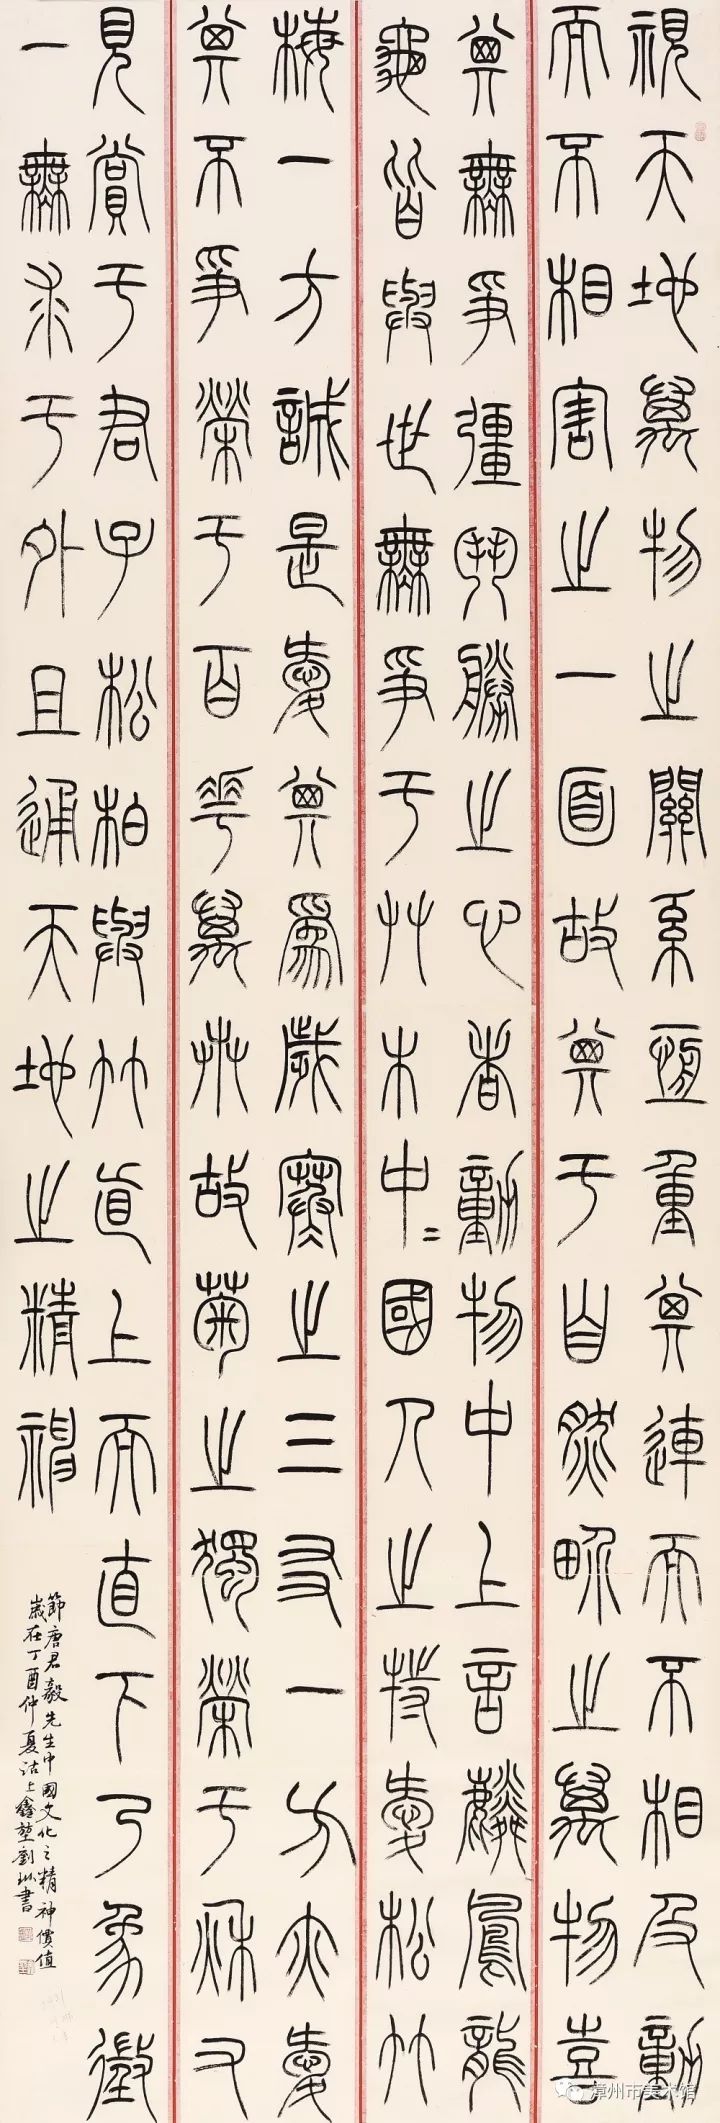 視天地萬物之關系恆重其連而不相及動
而不相害之一面故其于自然界之萬物喜
其無爭彊鬥勝之心者動物中上言麟鳳龍
龜皆與世無爭于艸木中=國人之特愛松竹
梅一方誠是愛其為歲寒之三友一方亦愛
其不爭榮于百花萬卉故菊之獨榮于秋又
見賞于君子松柏與竹直上而直下乃象徵
一無求于外且通天地之精神
節唐君毅先生中國文化之精神價值
歲在丁酉仲夏沽上鑫堃劉琳書
漳州市美术馆